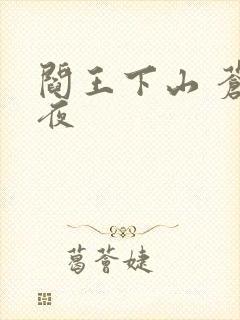 閻王下山 蒼
夜
葛薈婕